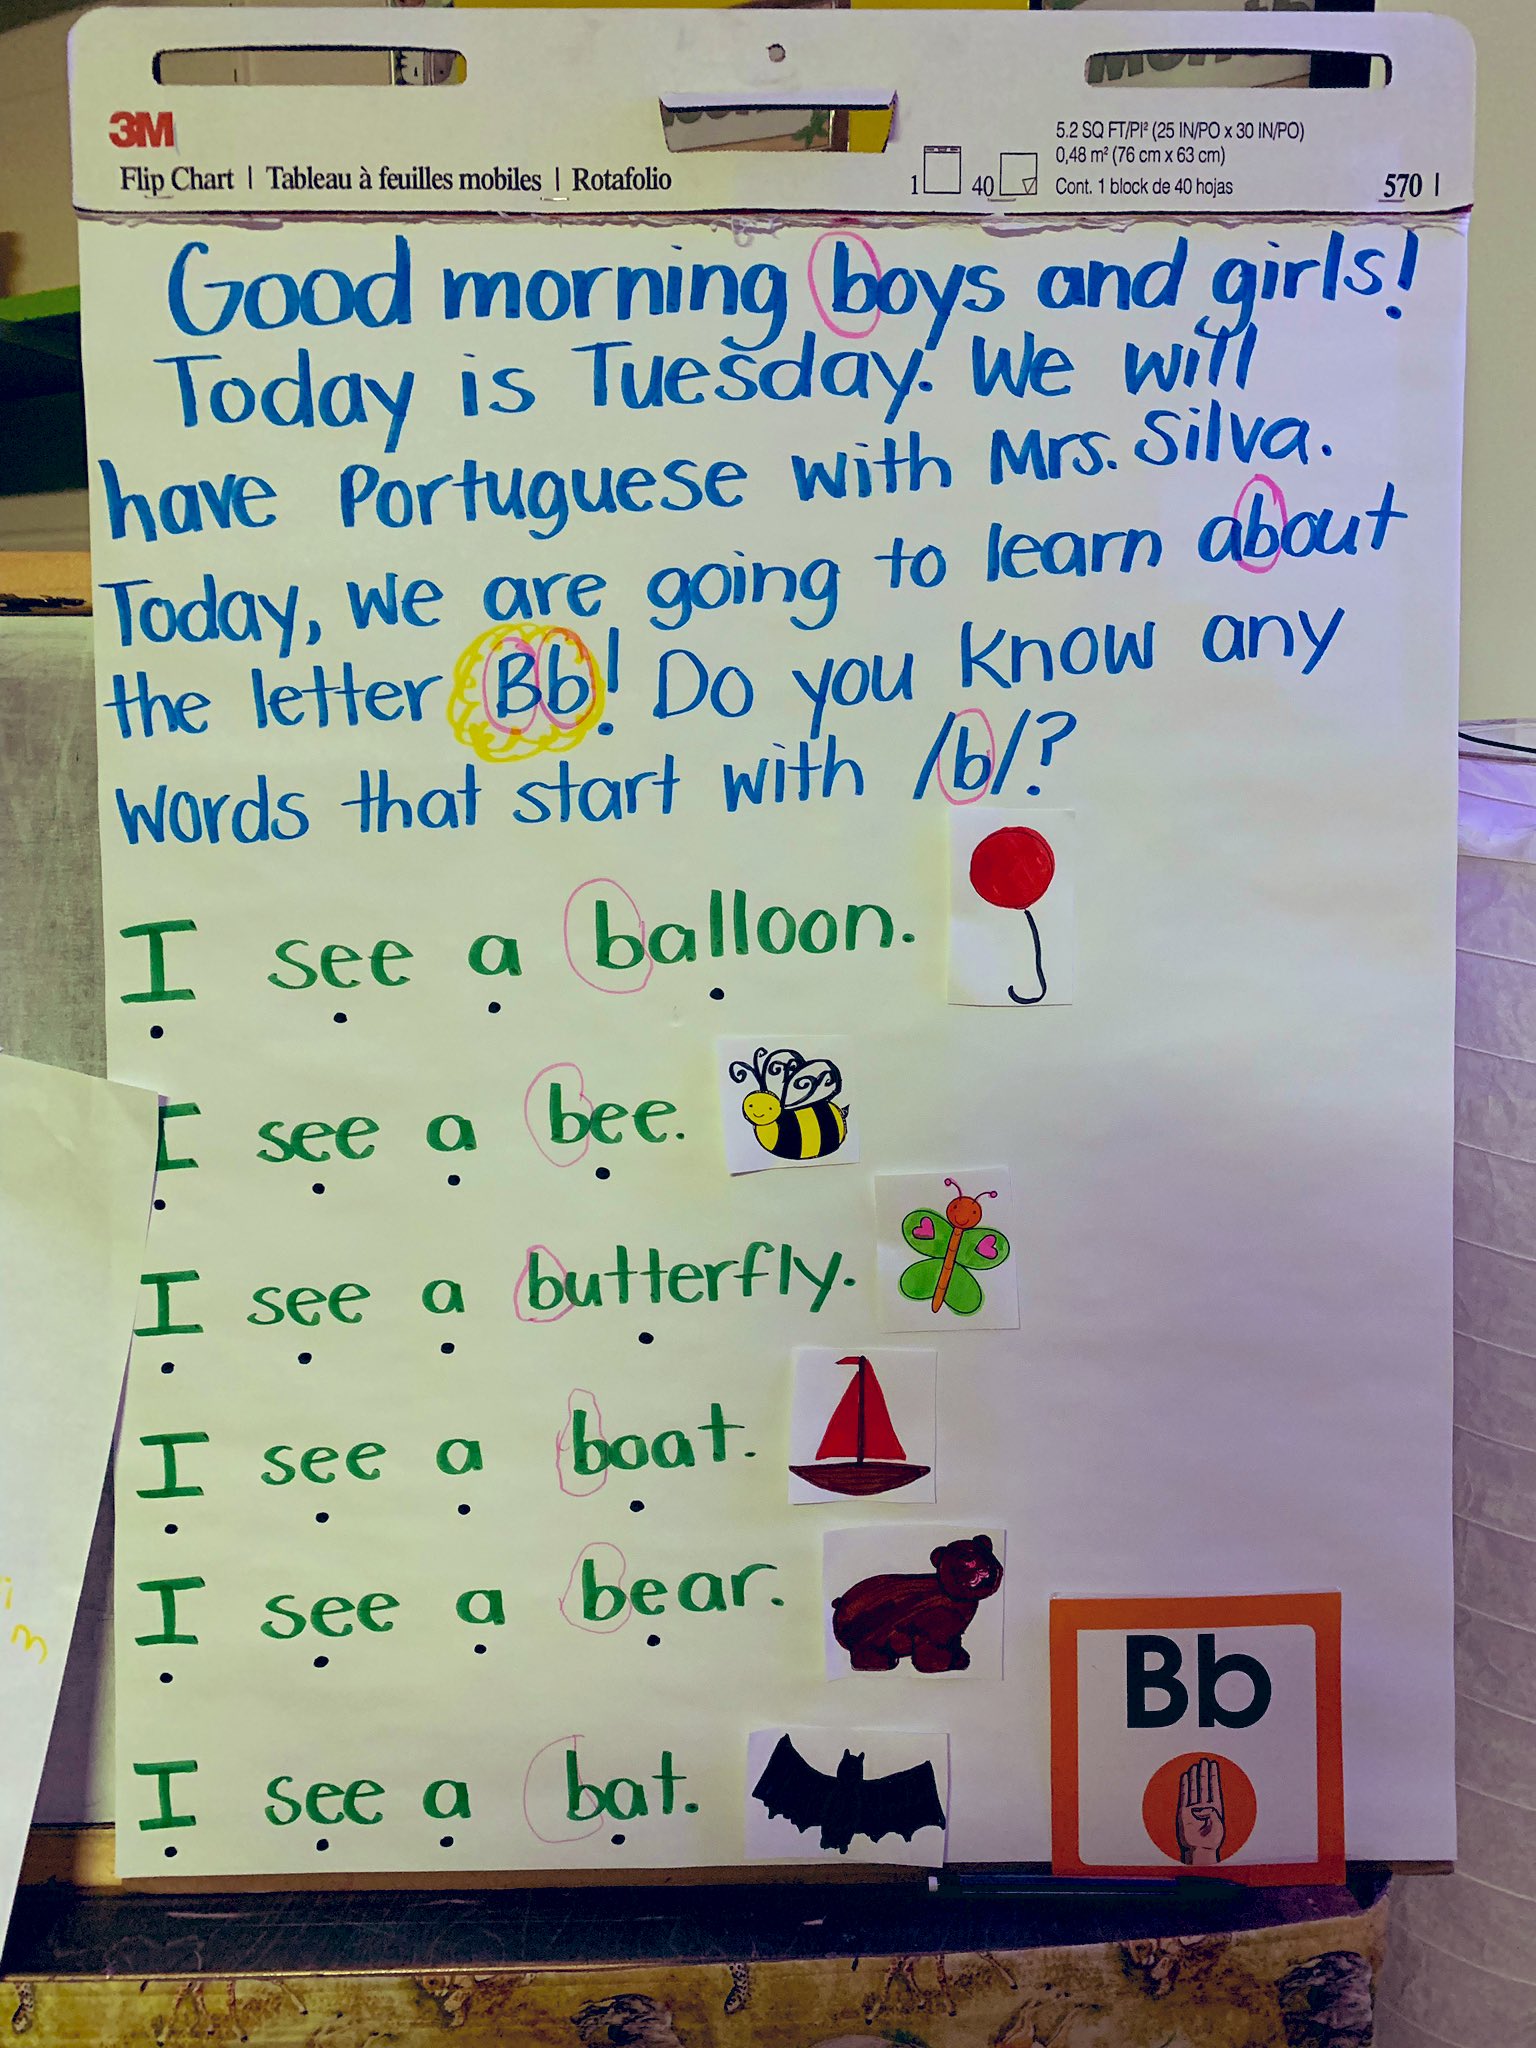 3M
Flip Chart | Tableau à feuilles mobiles | Rotafolio
1 40
5.2 SQ FT/PI² (25 IN/PO x 30 IN/PO)
0,48 m² (76 cm x 63 cm)
Cont. 1 block de 40 hojas
570
Good morning boys and girls!
Today is Tuesday. We will
have Portuguese with Mrs. Silva.
Today, we are going to learn about
the letter Bb! Do you know any
words that start with /b/?
I see a balloon.
I see a bee.
I see a butterfly.
I see a boat.
I see a bear.
I see a bat.
Bb